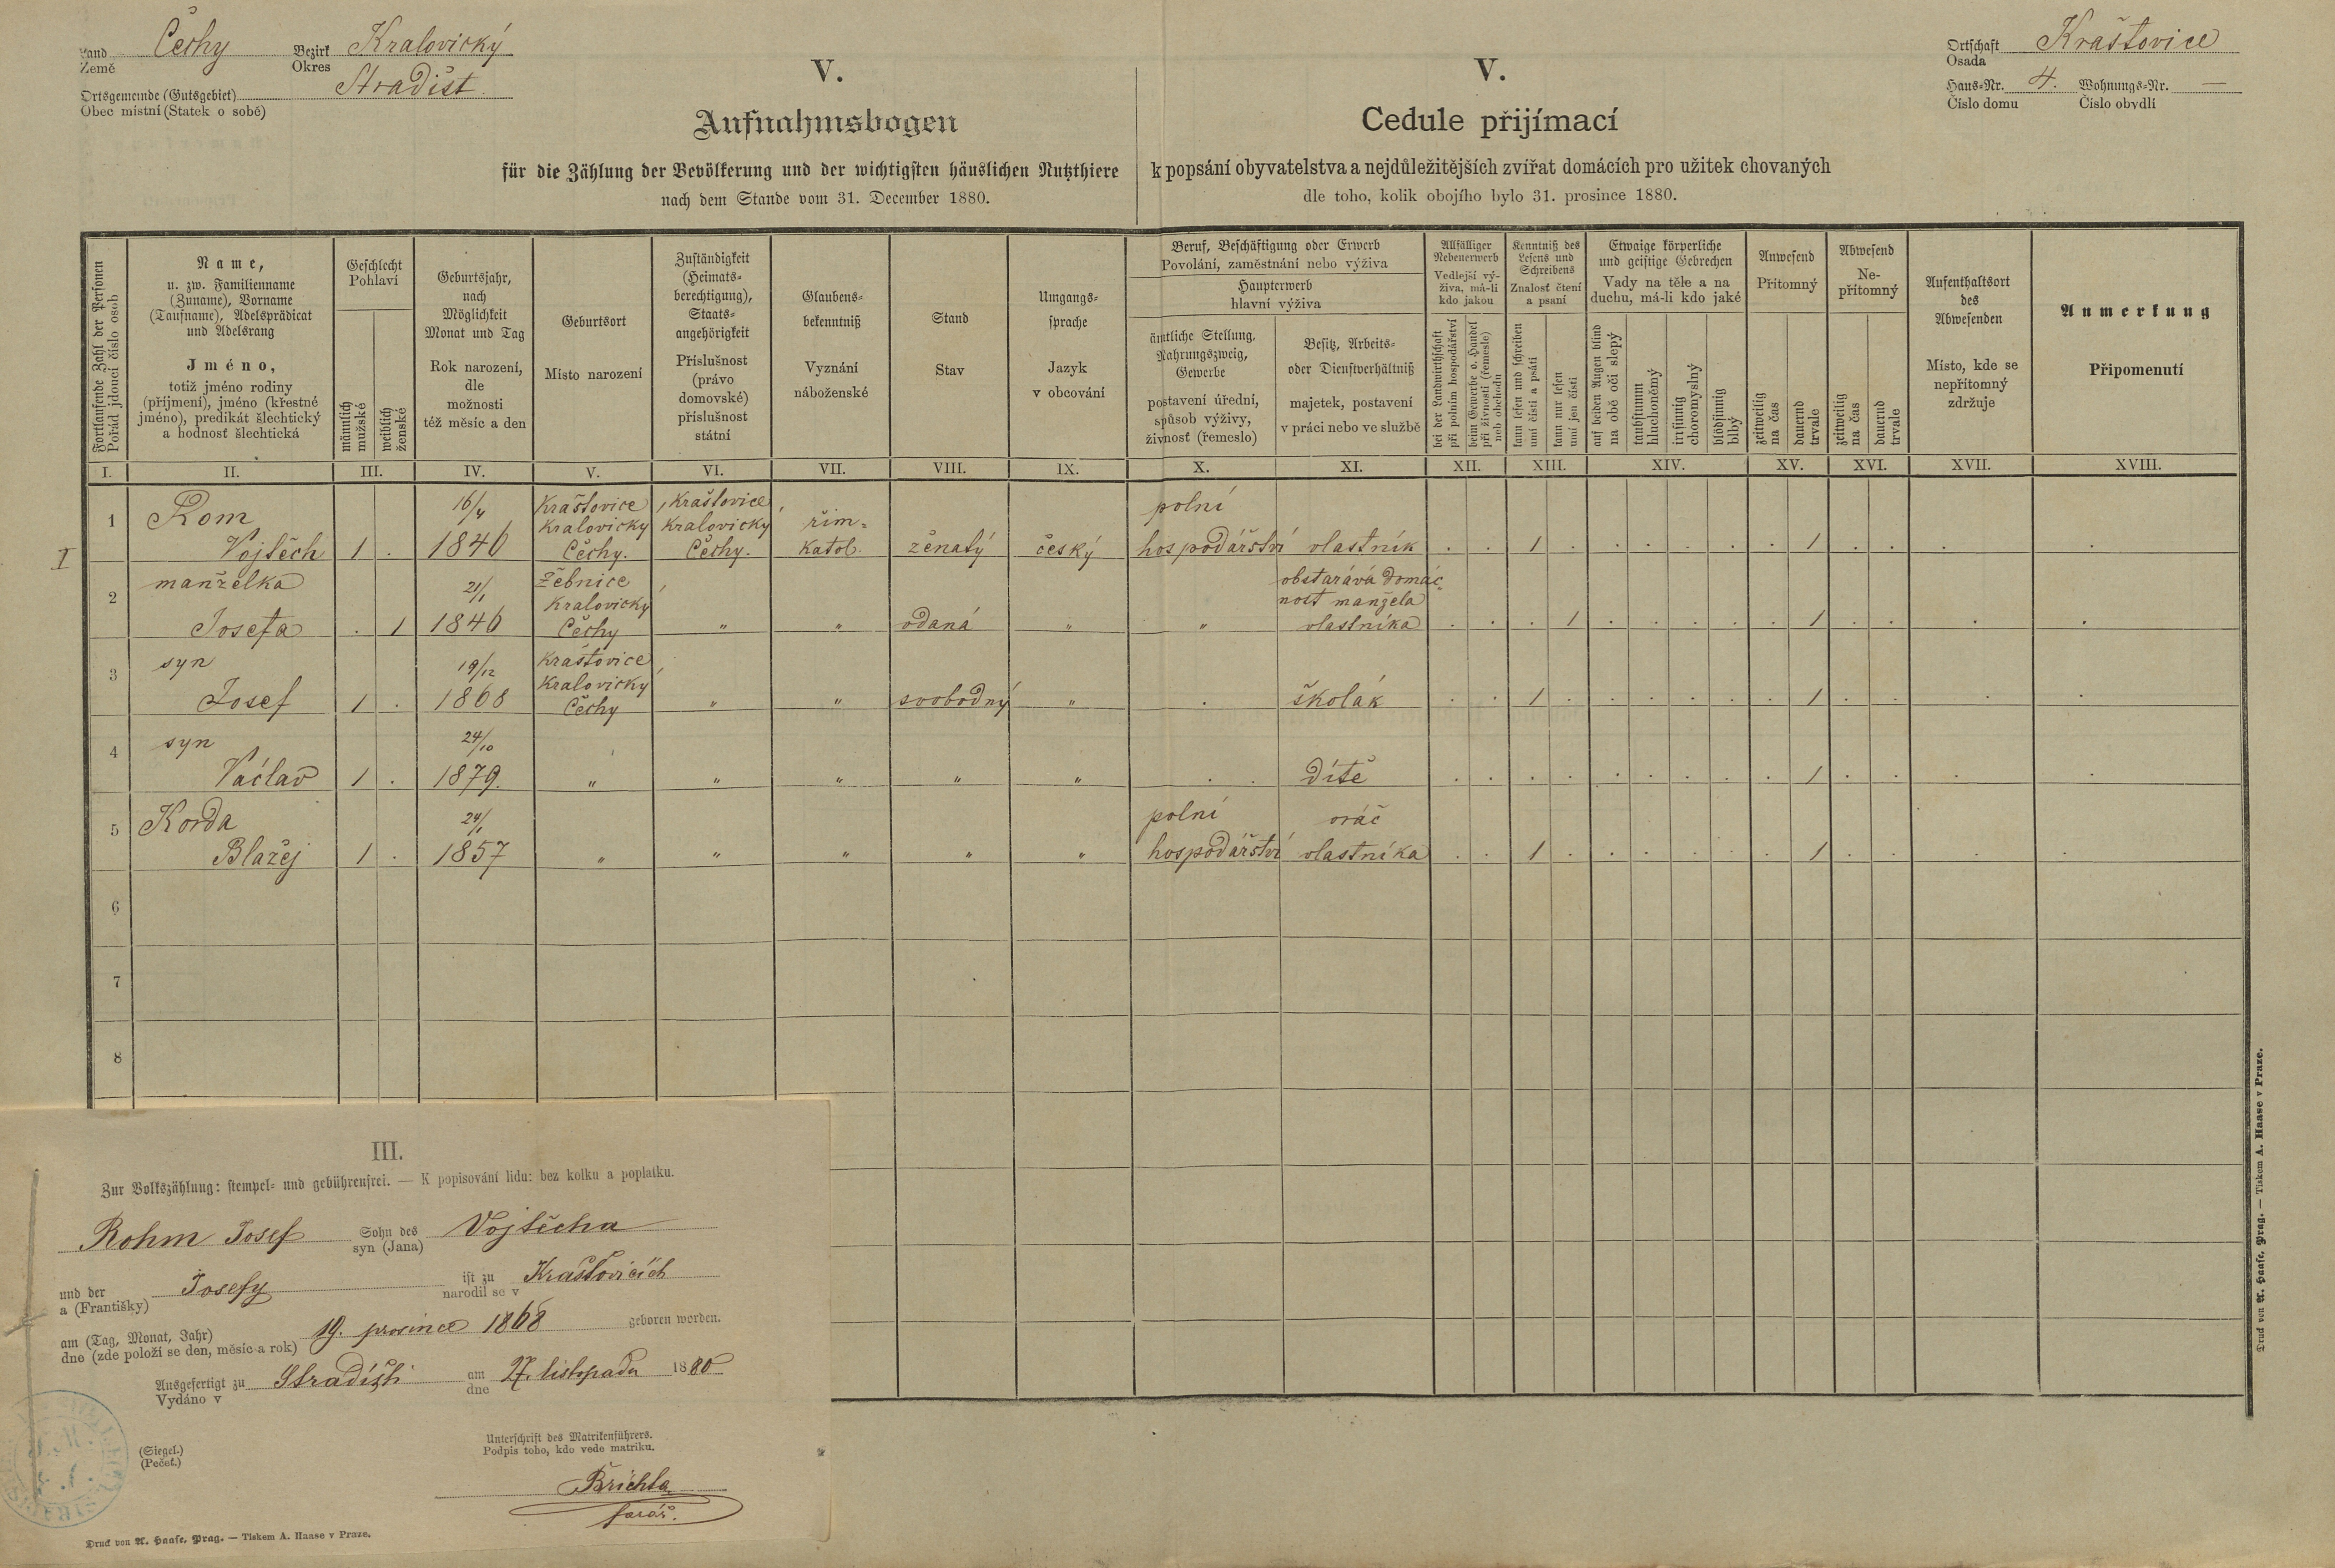 Land Čechy Bezirk Kralovický
Země Okres
Ortsgemeinde (Gutsgebiet) Stradišt
Obec místní (Statek o sobě)
Ortschaft Kraštovice
Osada
Haus-Nr. 4. Wohnungs-Nr. —
Číslo domu Číslo obydlí
V.
Aufnahmsbogen
für die Zählung der Bevölkerung und der wichtigsten häuslichen Nutzthiere
nach dem Stande vom 31. December 1880.
V.
Cedule přijímací
k popsání obyvatelstva a nejdůležitějších zvířat domácích pro užitek chovaných
dle toho, kolik obojího bylo 31. prosince 1880.
Fortlaufende Zahl der Personen
Pořád jdoucí číslo osob
Name,
u. zw. Familienname
(Zuname), Vorname
(Taufname), Adelsprädicat
und Adelsrang
Jméno,
totiž jméno rodiny
(příjmení), jméno (křestné
jméno), predikát šlechtický
a hodnosť šlechtická
Geschlecht
Pohlaví
männlich
mužské
weiblich
ženské
Geburtsjahr,
nach
Möglichkeit
Monat und Tag
Rok narození,
dle
možnosti
též měsíc a den
Geburtsort
Místo narození
Zuständigkeit
(Heimats-
berechtigung),
Staats-
angehörigkeit
Příslušnost
(právo
domovské)
příslušnost
státní
Glaubens-
bekenntniß
Vyznání
náboženské
Stand
Stav
Umgangs-
sprache
Jazyk
v obcování
Beruf, Beschäftigung oder Erwerb
Povolání, zaměstnání nebo výživa
Haupterwerb
hlavní výživa
ämtliche Stellung,
Nahrungszweig,
Gewerbe
postavení úřední,
spůsob výživy,
živnosť (řemeslo)
Besitz, Arbeits-
oder Dienstverhältniß
majetek, postavení
v práci nebo ve službě
Allfälliger
Nebenerwerb
Vedlejší vý-
živa, má-li
kdo jakou
bei der Landwirthschaft
při polním hospodářství
beim Gewerbe o. Handel
při živnosti (řemesle)
neb obchodu
Kenntniß des
Lesens und
Schreibens
Znalosť čtení
a psaní
kann lesen und schreiben
umí čísti a psáti
kann nur lesen
umí jen čísti
Etwaige körperliche
und geistige Gebrechen
Vady na těle a na
duchu, má-li kdo jaké
auf beiden Augen blind
na obě oči slepý
taubstumm
hluchoněmý
irrsinnig
choromyslný
blödsinnig
blbý
Anwesend
Přítomný
zeitweilig
na čas
dauernd
trvale
Abwesend
Ne-
přítomný
zeitweilig
na čas
dauernd
trvale
Aufenthaltsort
des
Abwesenden
Místo, kde se
nepřítomný
zdržuje
Anmerkung
Připomenutí
I. II. III. IV. V. VI. VII. VIII. IX. X. XI. XII. XIII. XIV. XV. XVI. XVII. XVIII.
I
16/4 Kraštovice Kraštovice polní
1 Rom Kralovický Kralovický řím-
Vojtěch 1 . 1846 Čechy. Čechy. katol. ženatý český hospodářství vlastník . . 1 . . . . . . 1 . . . .
manželka 21/1 Žebnice obstarává domác-
2 Kralovický nost manžela
Josefa . 1 1846 Čechy " " vdaná " " vlastníka . . . 1 . . . . . 1 . . . .
syn 19/12 Kraštovice
3 Kralovický
Josef 1 . 1868 Čechy " " svobodný " . školák . . 1 . . . . . . 1 . . . .
syn 24/10
4 Václav 1 . 1879. " " " " " . . dítě . . . . . . . . . 1 . . . .
5 Korda 24/1 polní oráč
Blažej 1 . 1857 " " " " " hospodářství vlastníka . . 1 . . . . . . 1 . . . .
6
7
8
III.
Zur Volkszählung: stempel- und gebührenfrei. — K popisování lidu: bez kolku a poplatku.
Rohm Josef Sohn des Vojtěcha
syn (Jana)
und der Josefy ist zu Kraštovicích
a (Františky) narodil se v
am (Tag, Monat, Jahr) 19. prosince 1868 geboren worden.
dne (zde položí se den, měsíc a rok)
Ausgefertigt zu Stradišti am 27. listopadu 1880
Vydáno v dne
(Siegel.)
(Pečeť.)
Unterschrift des Matrikenführers.
Podpis toho, kdo vede matriku.
Břichta
farář.
Druck von A. Haase, Prag. — Tiskem A. Haase v Praze.
Druck von A. Haase, Prag. — Tiskem A. Haase v Praze.